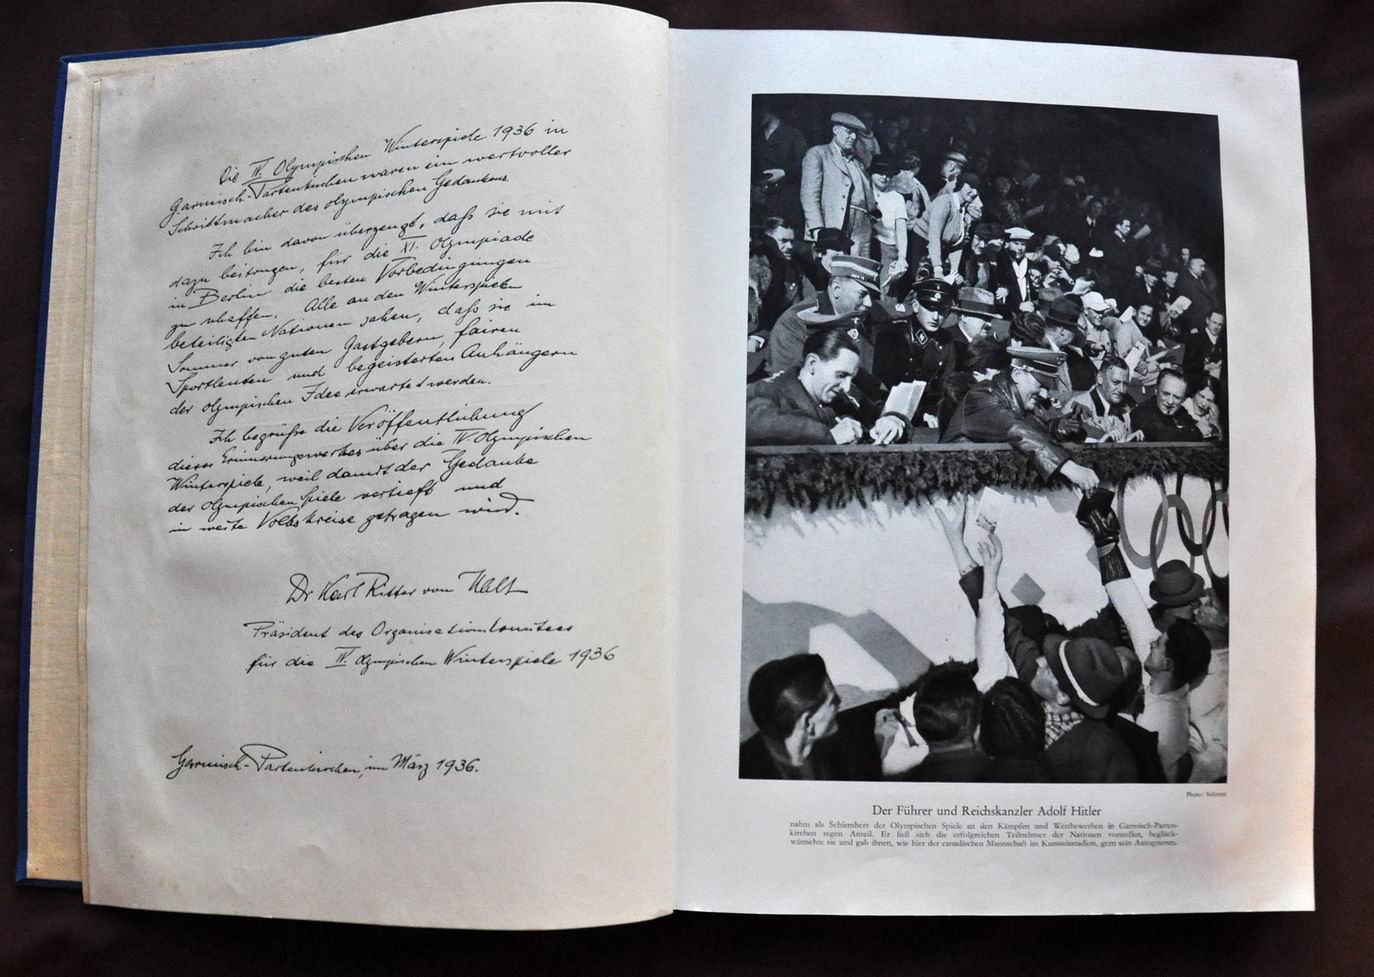 Die IV. Olympischen Winterspiele 1936 in
Garmisch-Partenkirchen waren ein wertvoller
Schrittmacher des olympischen Gedankens.
Ich bin davon überzeugt, daß sie mit
dazu beitrugen, für die XI. Olympiade
in Berlin die besten Vorbedingungen
zu schaffen. Alle an den Winterspielen
beteiligten Nationen sahen, daß sie im
Sommer von guten Gastgebern, fairen
Sportleuten und begeisterten Anhängern
der olympischen Idee erwartet werden.
Ich begrüße die Veröffentlichung
dieses Erinnerungswerkes über die IV. Olympischen
Winterspiele, weil damit der Gedanke
der Olympischen Spiele vertieft und
in weite Volkskreise getragen wird.
Dr Karl Ritter von Halt
Präsident des Organisationskomitees
für die IV. olympischen Winterspiele 1936
Garmisch-Partenkirchen, im März 1936.
Photo: Schirner
Der Führer und Reichskanzler Adolf Hitler
nahm als Schirmherr der Olympischen Spiele an den Kämpfen und Wettbewerben in Garmisch-Parten-
kirchen regen Anteil. Er ließ sich die erfolgreichen Teilnehmer der Nationen vorstellen, beglück-
wünschte sie und gab ihnen, wie hier der canadischen Mannschaft im Kunsteisstadion, gern sein Autogramm.